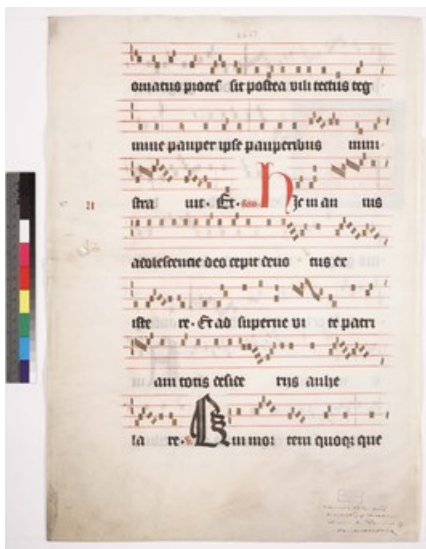 ornatus proces sit postea vili tectus teg
mine pauper ipse pauperibus mini
stra uit. Et. Hic in an nis
adolescentie deo cepit deuo tus ex
iste re. Et ad superne vi te patri
am totis deside rijs anhe
la re. Qui mor tem quoqz que